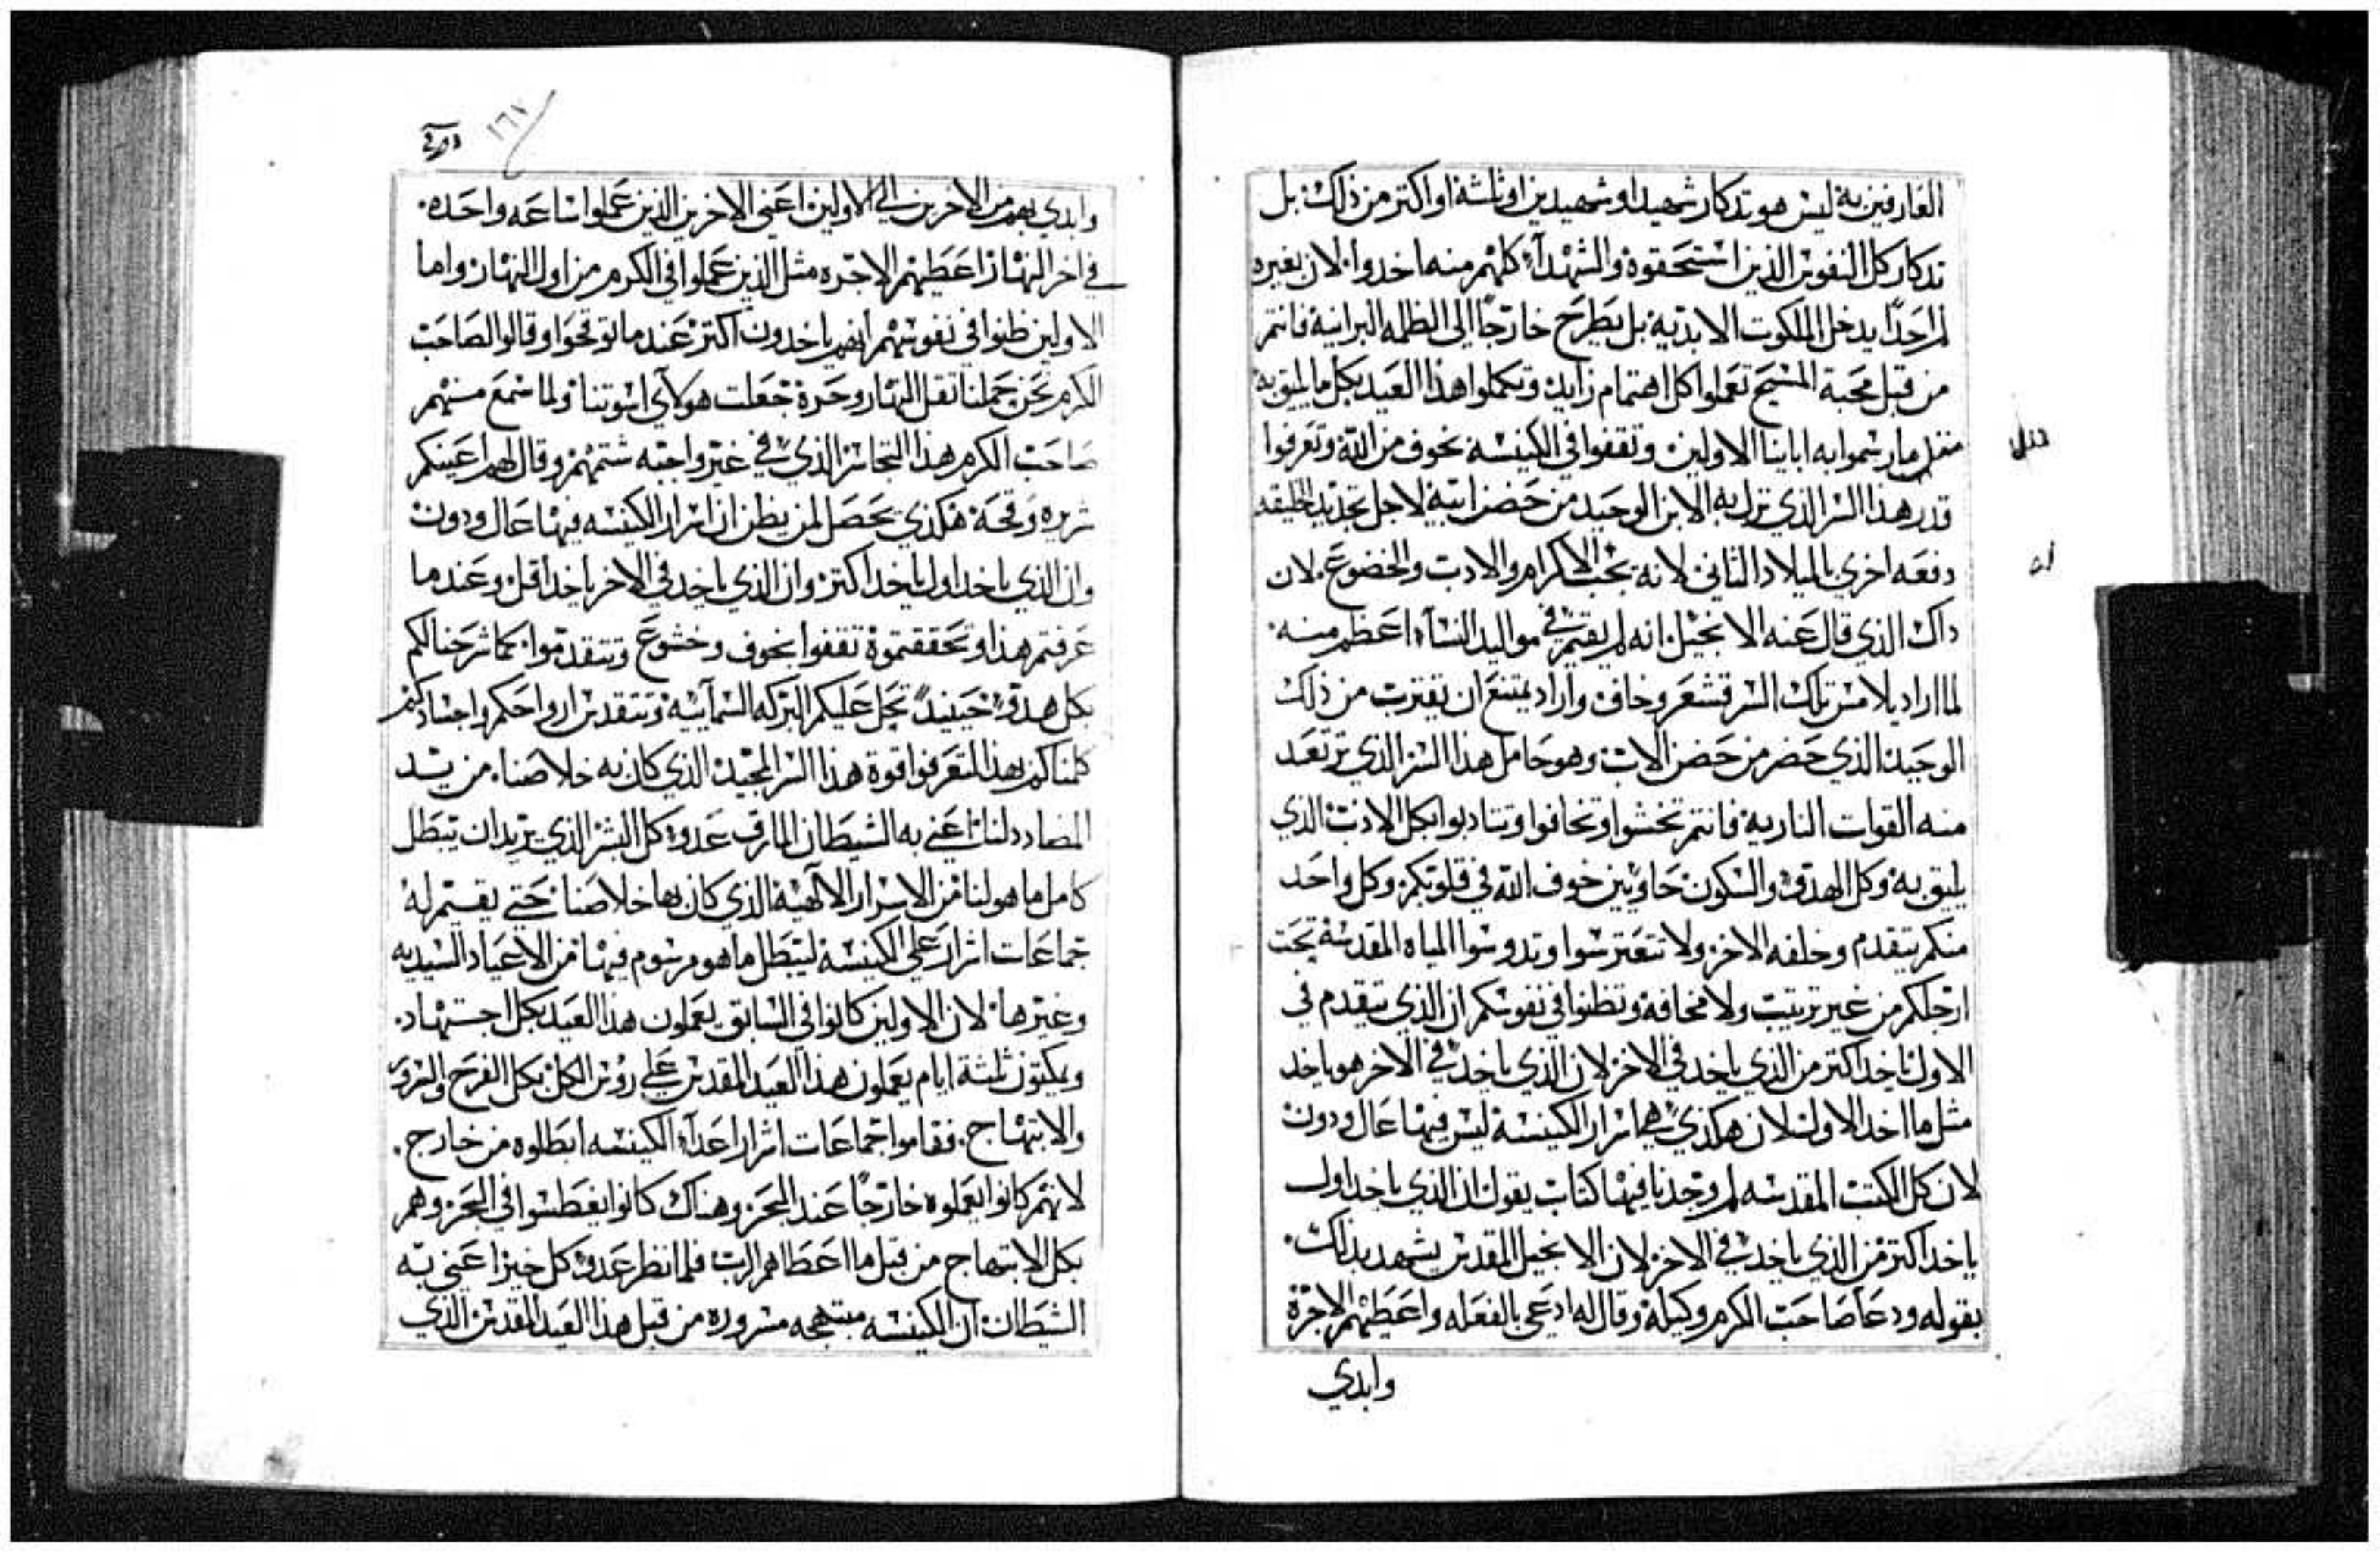 العارفين به ليس هو تدكار شهيد او شهيدين او ثلثة او اكتر من ذلك بل
تدكار كل النفوس الذين استحقوة والشهدآء كلهم منه اخدوا لان بغيره
لم احدًا يدخل الملكوت الابدية بل يطرح خارجًا الي الظلمه البرانية فانتم
من قبل محبة المسيح تعملوا كل اهتمام زايد وتكملوا هذا العيد بكل ما يليق به
مثل ما رسموا به اباينا الاولين وتقفوا في الكنيسة بخوف من الله وتعرفوا
قدر هذا السر الذي نزل به الابن الوحيد من حضن ابيه لاجل تجديد الخليقه
دفعه اخري بالميلاد الثاني لانه يجب الاكرام والادب والخضوع لان
داك الذي قال عنه الانجيل انه لم يقم في مواليد النسآء اعظم منه
لما اراد يلامس تلك السر قشعر وخاف واراد يمتنع ان يقترب من ذلك
الوحيد الذي حضر من حضن الاب وهو حامل هذا السر الذي ترتعد
منه القوات النارية فانتم تخشوا وتخافوا وتتادبوا بكل الادب الذي
يليق به وكل الهدوء والسكون حاويين خوف الله في قلوبكم وكل واحد
منكم يتقدم وخلفه الاخر ولا تتعترسوا وتدوسوا المياه المقدسة تحت
ارجلكم من غير ترتيب ولا مخافة وتظنوا في نفوسكم ان الذي يتقدم في
الاول ياخد اكتر من الذي ياخد في الاخر لان الذي ياخد في الاخر هو ياخد
مثل ما اخد الاول لان هكذي هي اسرار الكنيسة ليس فيها عال ودون
لان كل الكتب المقدسه لم وجدنا فيها كتاب يقول ان الذي ياخد اول
ياخد اكتر من الذي ياخد في الاخر لان الانجيل المقدس يشهد بدلك
بقوله ودعا صاحب الكرم وكيلة وقال له ادعي بالفعله واعطيهم الاجرة
وابدي
١٦٧
وابدي بهم من الاخرين الي الاولين اعني الاخرين الذين عملوا ساعه واحده
في اخر النهار اعطيهم الاجره مثل الذين عملوا في الكرم من اول النهار واما
الاولين ظنوا في نفوسهم انهم ياخدون اكتر عند ما توقحوا وقالوا لصاحب
الكرم نحن حملنا تقل النهار وحرة جعلت هولاي اسوتنا ولما سمع منهم
صاحب الكرم هذا التجاسر الذي في غير واجبه شتمهم وقال لهم اعينكم
شريره وقحة هكذي يحصل لمن يظن ان اسرار الكنيسه فيها عال ودون
وان الذي ياخد اول ياخد اكتر وان الذي ياخد في الاخر ياخد اقل وعند ما
عرفتم هذا وتحققتموة تقفوا بخوف وخشوع وتتقدموا كما شرحنا لكم
بكل هدوء حينيدٍ تحل عليكم البركه السمآئيه وتتقدس ارواحكم واجسادكم
كلمناكم بهذا لتعرفوا قوة هذا السر المجيد الذي كان به خلاصنا من يد
المضادد لنا اعني به الشيطان المارق عدو كل البشر الذي يريد ان يبطل
كامل ما هو لنا من الاسرار الالهية الذي كان بها خلاصنا حتي يقسم له
جماعات اشرار علي الكنيسة ليبطل ما هو مرسوم فيها من الاعياد السيديه
وغيرها لان الاولين كانوا في السابق يعملون هذا العيد بكل اجتهاد
ويكتون ثلثة ايام يعملون هذا العيد المقدس علي روس الكل بكل الفرح والسرور
والابتهاج فقاموا جماعات اشرار اعدآء الكنيسه ابطلوه من خارج
لانهم كانوا يعملوه خارجًا عند البحر وهناك كانوا يغطسوا في البحر وهم
بكل الابتهاج من قبل ما اعطاهم الرب فلما نظر عدو كل خير اعني به
الشيطان ان الكنيسه مبتهجه مسروره من قبل هذا العيد المقدس الذي